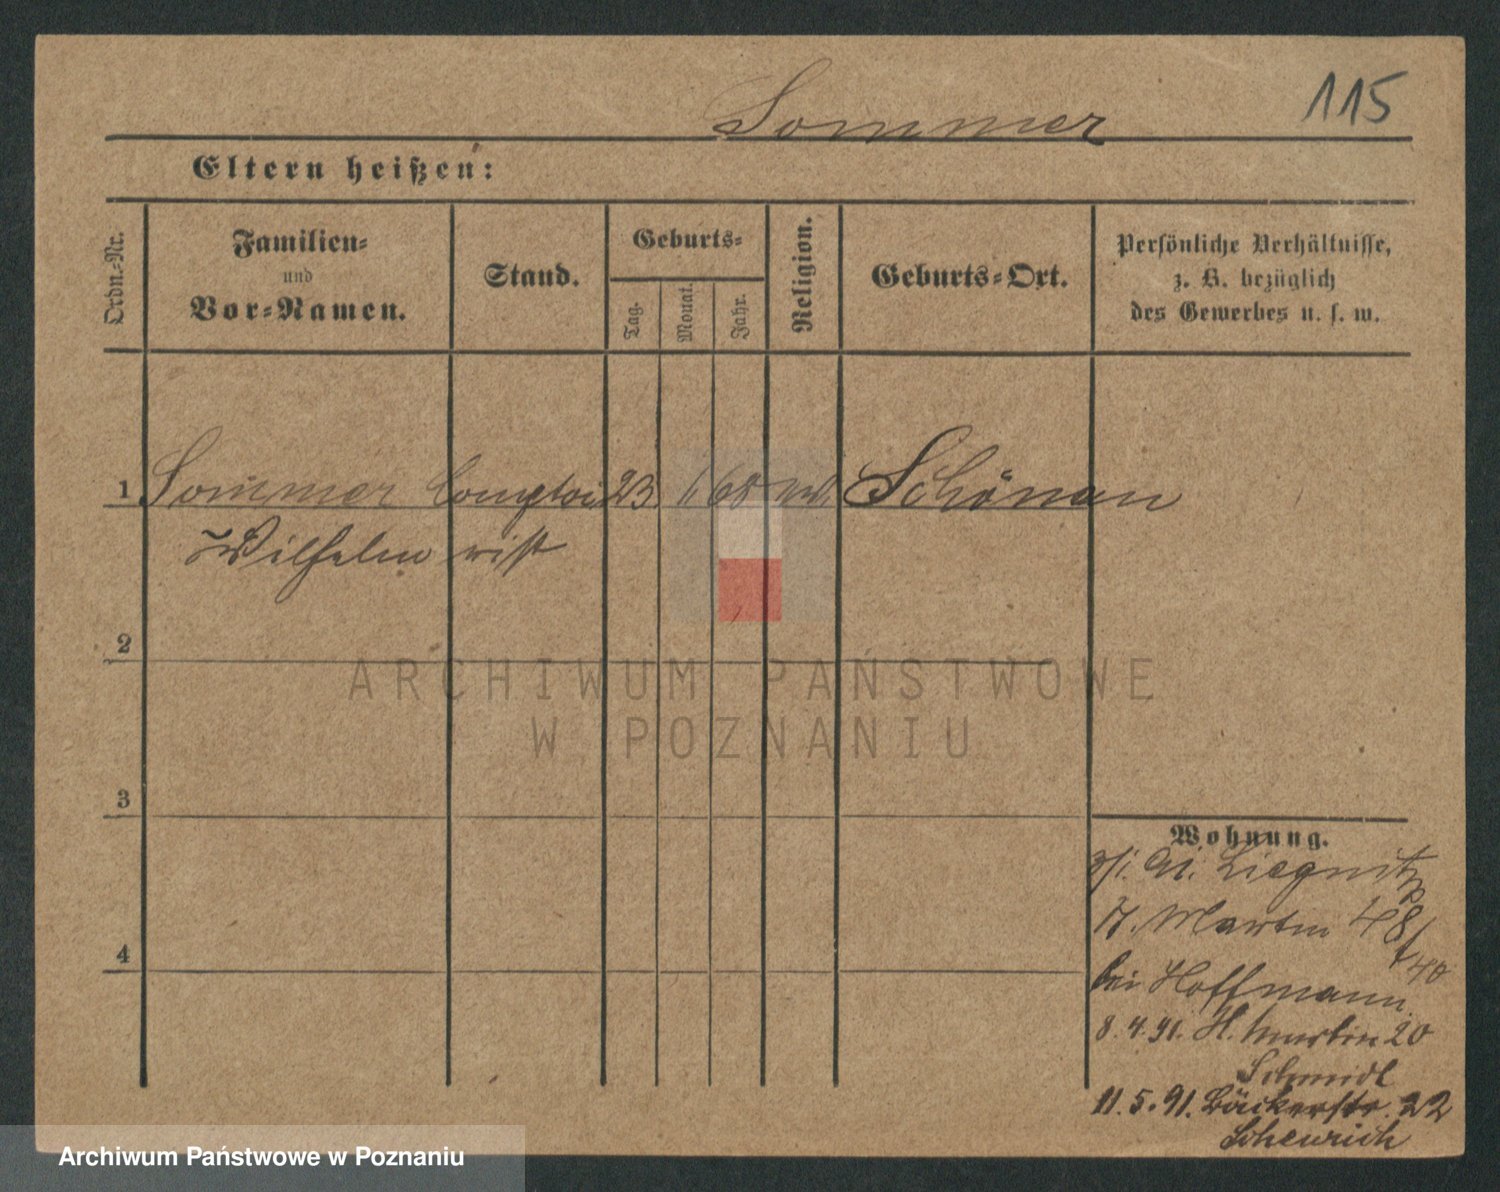 115
Sommer
Eltern heißen:
Ordn.-Nr.
Familien-
und
Vor-Namen.
Stand.
Geburts-
Tag.
Monat.
Jahr.
Religion.
Geburts-Ort.
Persönliche Verhältnisse,
z. B. bezüglich
des Gewerbes u. s. w.
1 Sommer Comptoi 23 1 68 Schönau
Wilhelm rist
2
ARCHIWUM PAŃSTWOWE
W POZNANIU
3
Wohnung.
3/1. 91. Liegnitz
St. Martin 48/40
bei Hoffmann
8.4.91. St. Martin 20
Schmidt
11.5.91. Bäckerstr. 22
Scheurich
4
Archiwum Państwowe w Poznaniu